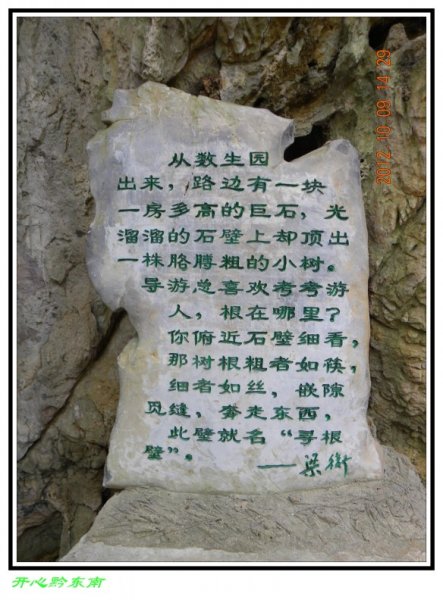 从数生园
出来，路边有一块
一房多高的巨石，光
溜溜的石壁上却顶出
一株胳膊粗的小树。
导游总喜欢考考游
人，根在哪里？
你俯近石壁细看，
那树根粗者如筷，
细者如丝，嵌隙
见缝，奔走东西，
此壁就名“寻根
壁”。
——梁衡
2012 10 09 14 29
开心黔东南